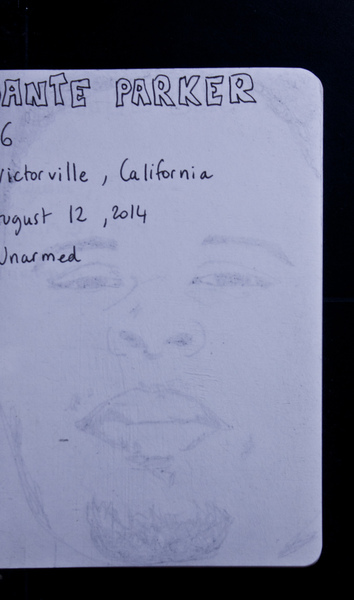 DANTE PARKER
6
Victorville, California
August 12, 2014
Unarmed